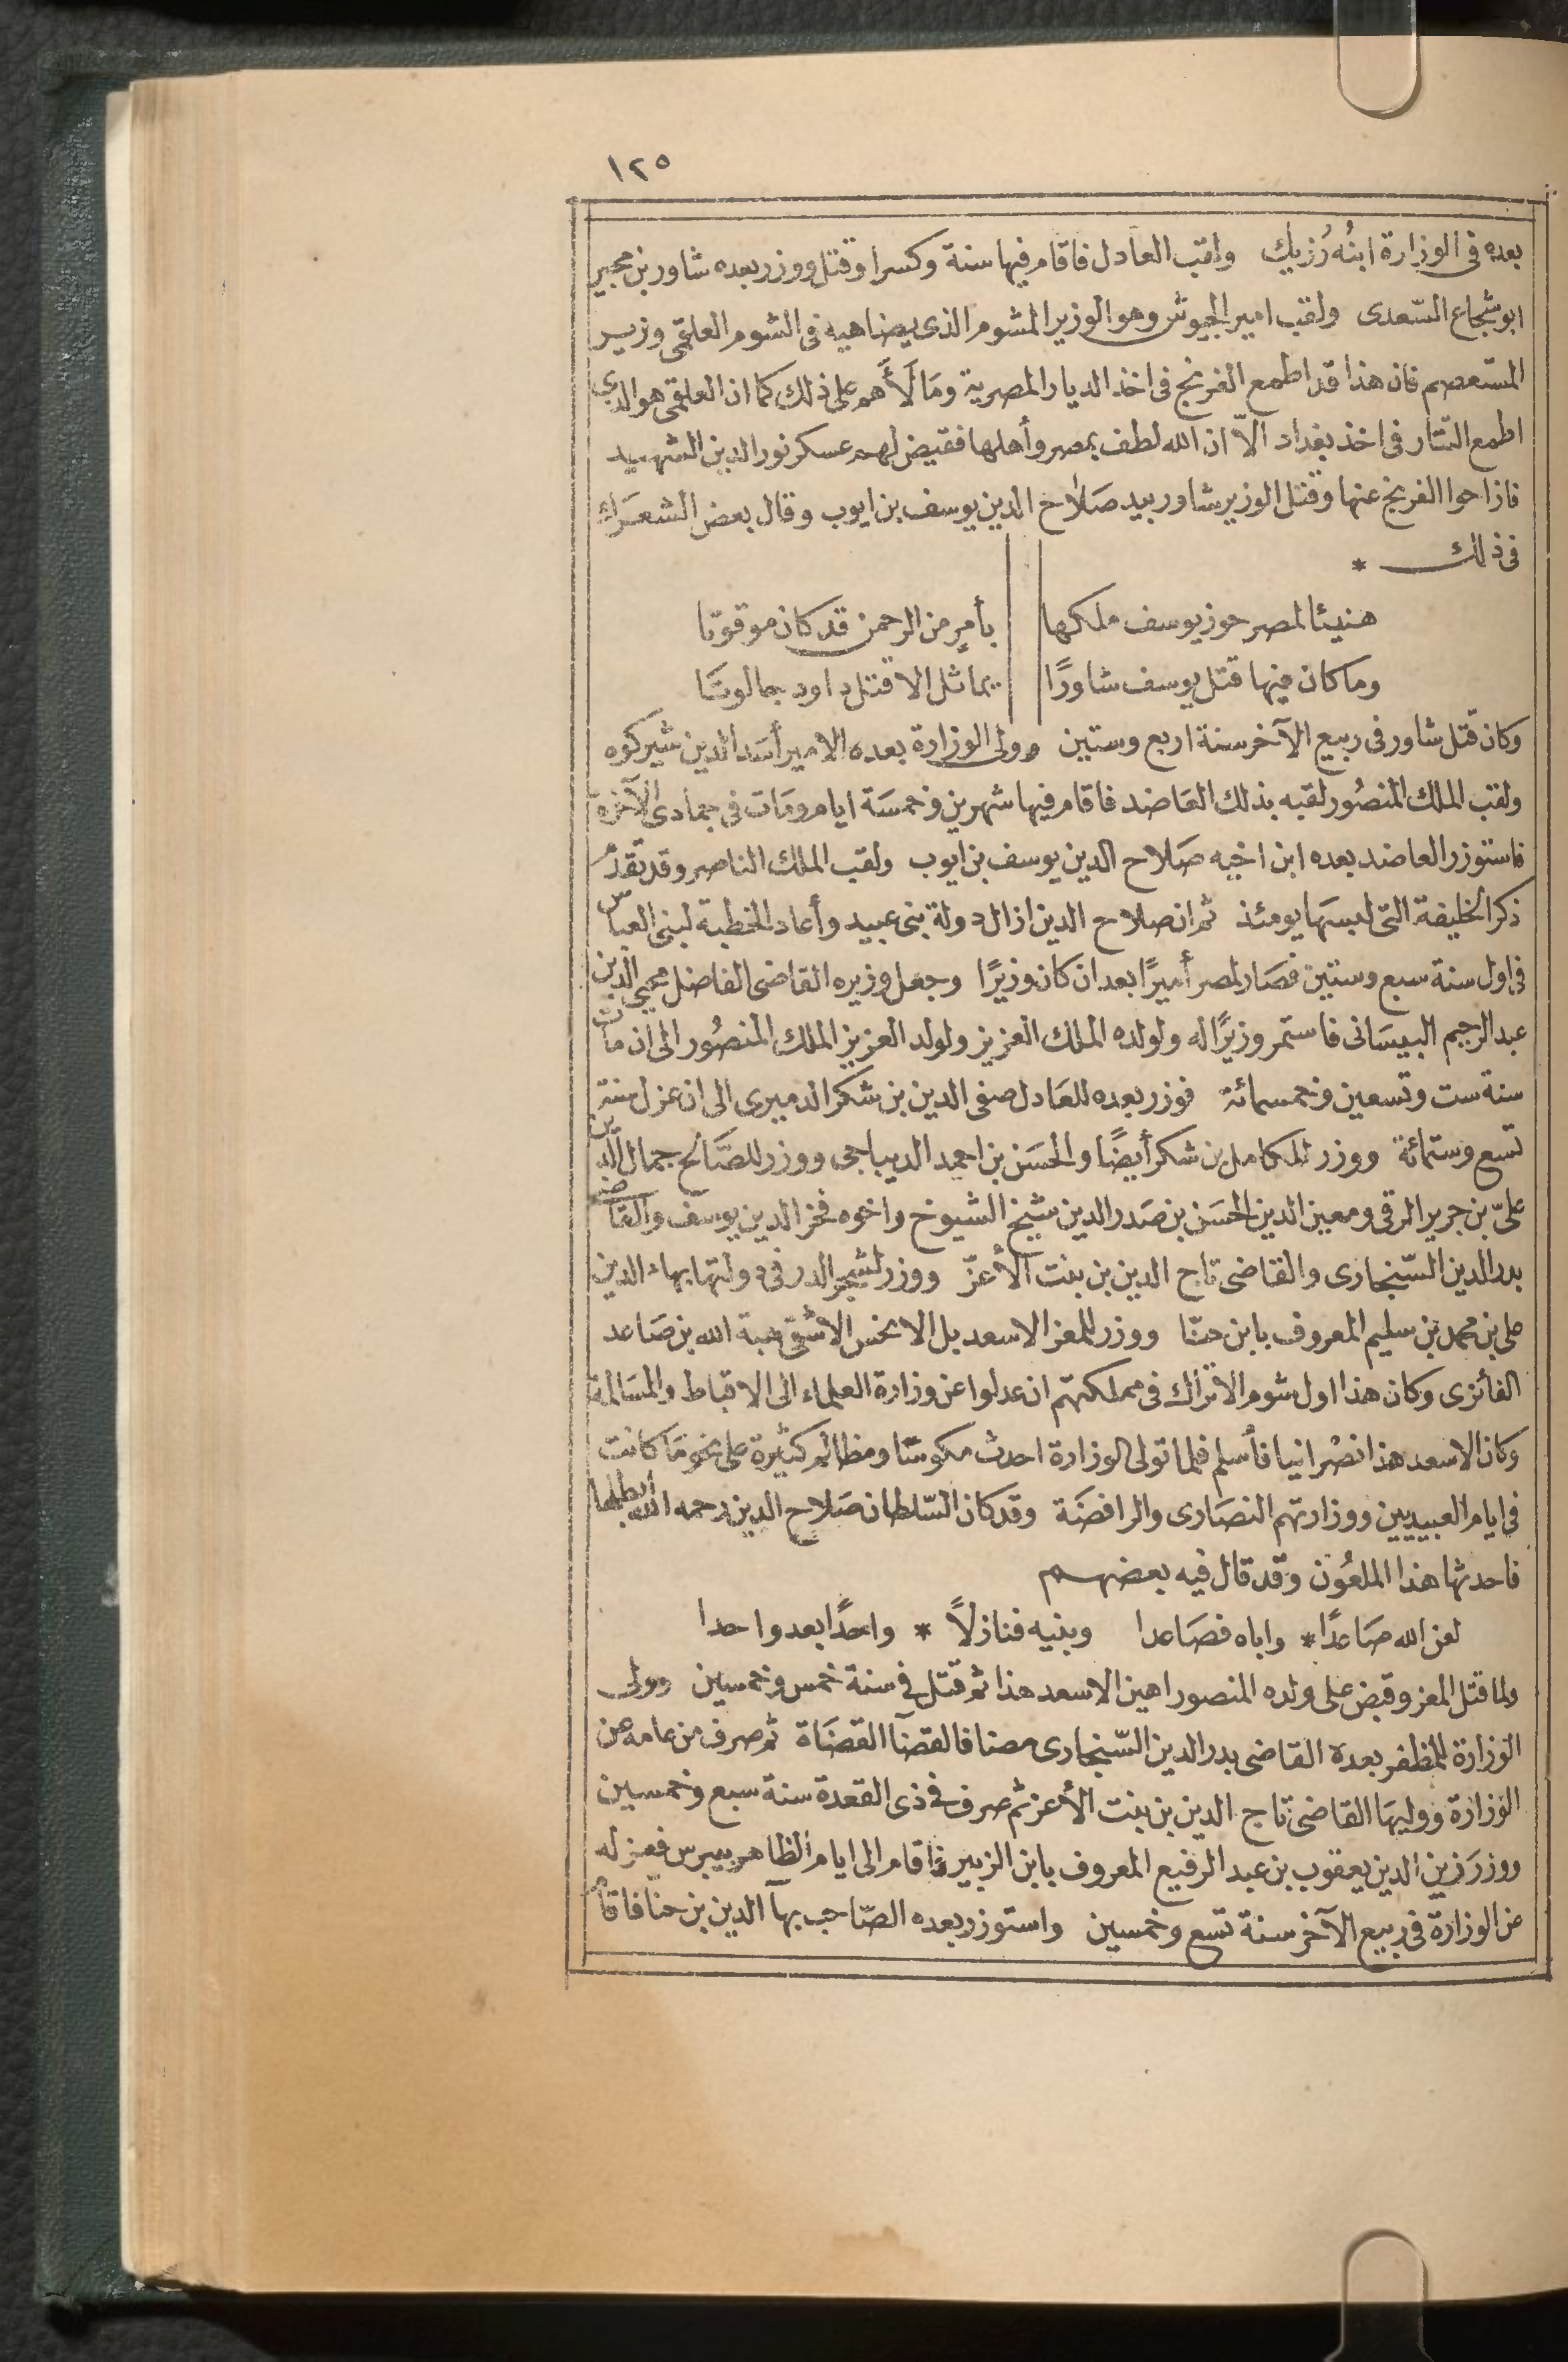 ١٢٥
بعده فى الوزارة ابنُه رُزيك ولقب العادل فاقام فيها سنة وكسرا وقتل ووزر بعده شاور بن مجير
ابو شجاع السّعدى ولقب امير الجيوش وهو الوزير المشوم الذى يضاهيه فى الشوم العلقمى وزير
المستعصم فان هذا قد اطمع الفرنج فى اخذ الديار المصرية ومَالَأَهم على ذلك كما ان العلقمى هو الذى
اطمع التتار فى اخذ بغداد الاّ ان الله لطف بمصر وأهلها فقيض لهم عسكر نور الدين الشهيد
فازاحوا الفرنج عنها وقتل الوزير شاور بيد صَلاح الدين يوسف بن ايوب وقال بعض الشعَراء
فى ذلك *
هنيئا لمصر حوز يوسف ملكها بأمرٍ من الرحمن قد كان موقوتا
وما كان فيها قتل يوسف شاورًا يماثل الا قتل داود جالوتا
وكان قتل شاور فى ربيع الآخر سنة اربع وستين وولى الوزارة بعده الامير أسَد الدين شيركوه
ولقب الملك المنصُور لقبه بذلك العَاضد فاقام فيها شهرين وخمسَة ايام ومَات فى جمادى الآخرة
فاستوزر العاضد بعده ابن اخيه صَلاح الدين يوسف بن ايوب ولقب الملك الناصر وقد تقدّم
ذكر الخليفة التى لبسَها يومئذ ثم ان صلاح الدين ازال دولة بنى عبيد وأعاد الخطبة لبنى العباس
فى اول سنة سبع وستين فصَار لمصر أميرًا بعد ان كان وزيرًا وجعل وزيره القاضى الفاضل محيى الدين
عبد الرحيم البيسَانى فاستمر وزيرًا له ولولده الملك العزيز ولولد العزيز الملك المنصُور الى ان مات
سنة ست وتسعين وخمسمائة فوزر بعده للعَادل صفى الدين بن شكر الدميرى الى ان عزل سنة
تسع وستمائة ووزر للكامل بن شكر أيضًا والحسَن بن احمد الديباجى ووزر للصَّالح جمال الدين
علىّ بن جرير الرقى ومعين الدين الحسَن بن صَدر الدين شيخ الشيوخ واخوه فخر الدين يوسف والقاضى
بدر الدين السّنجارى والقاضى تاج الدين بن بنت الأعزّ ووزر لشجر الدر فى دولتها بهاء الدين
على بن محمد بن سليم المعروف بابن حنّا ووزر للمعز الاسعد بل الانحس الاشقى هبة الله بن صَاعد
الفائزى وكان هذا اول شوم الاتراك فى مملكتهم ان عدلوا عن وزارة العلماء الى الاقباط والمسَالمة
وكان الاسعد هذا نصْرانيا فأسلم فلما تولى الوزارة احدث مكوسًا ومظالم كثيرة على نحو مَا كانت
فى ايام العبيديين ووزارتهم النصَارى والرافضَة وقد كان السّلطان صَلاح الدين رحمه الله أبطلها
فاحدثها هذا الملعُون وقد قال فيه بعضهم
لعن الله صَاعدًا * واباه فصَاعدا وبنيه فنازلاً * واحدًا بعد واحدا
ولما قتل المعز وقبض على ولده المنصور اهين الاسعد هذا ثم قتل فى سنة خمس وخمسين وولى
الوزارة للمظفر بعده القاضى بدر الدين السّنجارى مضافا لقضآ القضَاة ثم صرف من عامه من
الوزارة ووليهَا القاضى تاج الدين بن بنت الأعز ثم صرف فى ذى القعدة سنة سبع وخمسين
ووزرَ زين الدين يعقوب بن عبد الرفيع المعروف بابن الزبير فاقام الى ايام الظاهر بيبرس فعزله
من الوزارة فى ربيع الآخر سنة تسع وخمسين واستوزر بعده الصّاحب بهآ الدين بن حنا فاقام